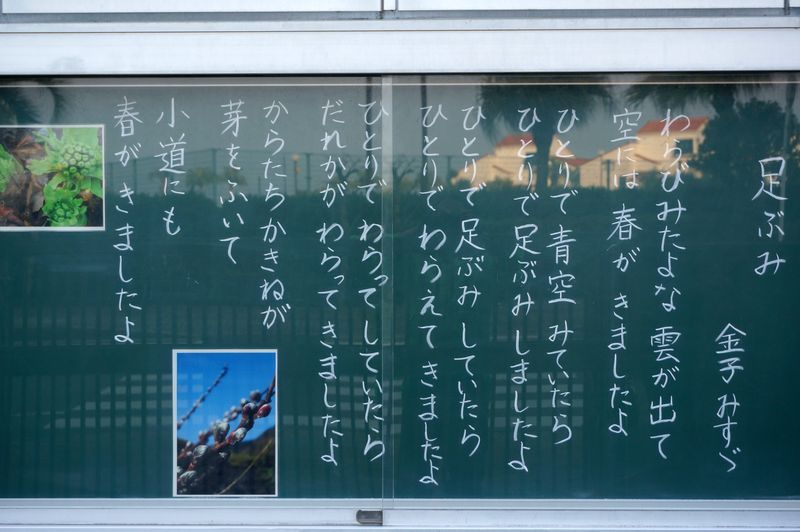 足ぶみ
金子みすゞ
わらびみたよな 雲が出て
空には 春が きましたよ
ひとりで 青空 みていたら
ひとりで 足ぶみ しましたよ
ひとりで 足ぶみ していたら
ひとりで わらえて きましたよ
ひとりで わらって していたら
だれかが わらって きましたよ
からたちかきねが
芽をふいて
小道にも
春が きましたよ